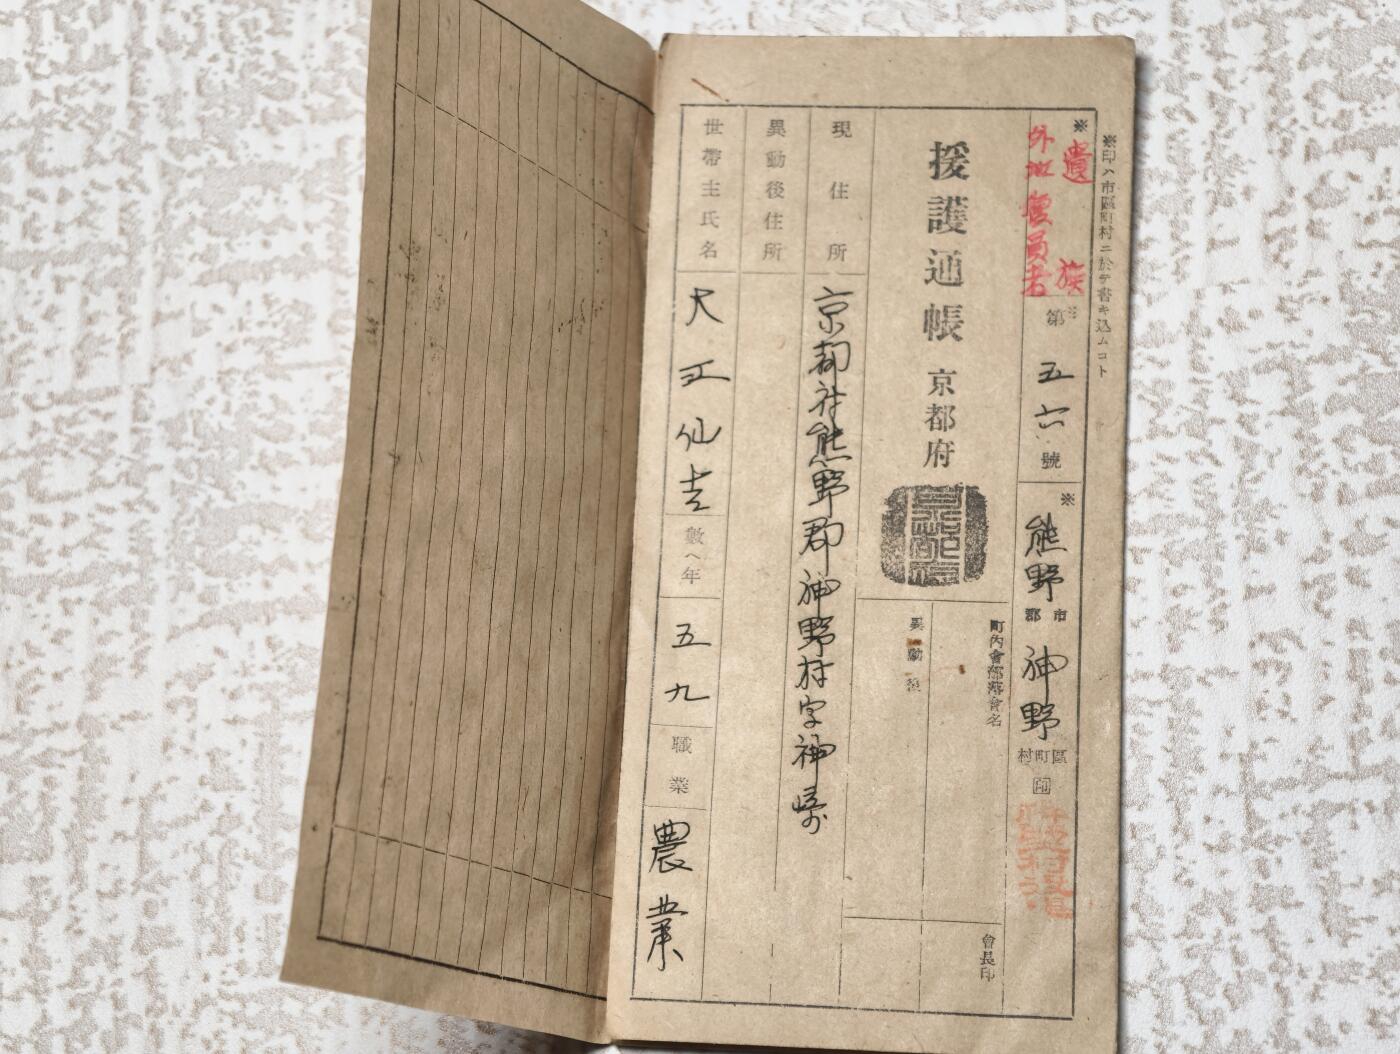 ※印ハ市區町村ニ於テ書キ込ムコト
※遺族
外地復員者
※第五六號
※熊野郡市
神野村町區
印
援護通帳 京都府
町內會部落會名
異動後
會長印
現住所
京都府熊野郡神野村字神崎
異動後住所
世帶主氏名
仙吉
數ヘ年 五九
職業 農業